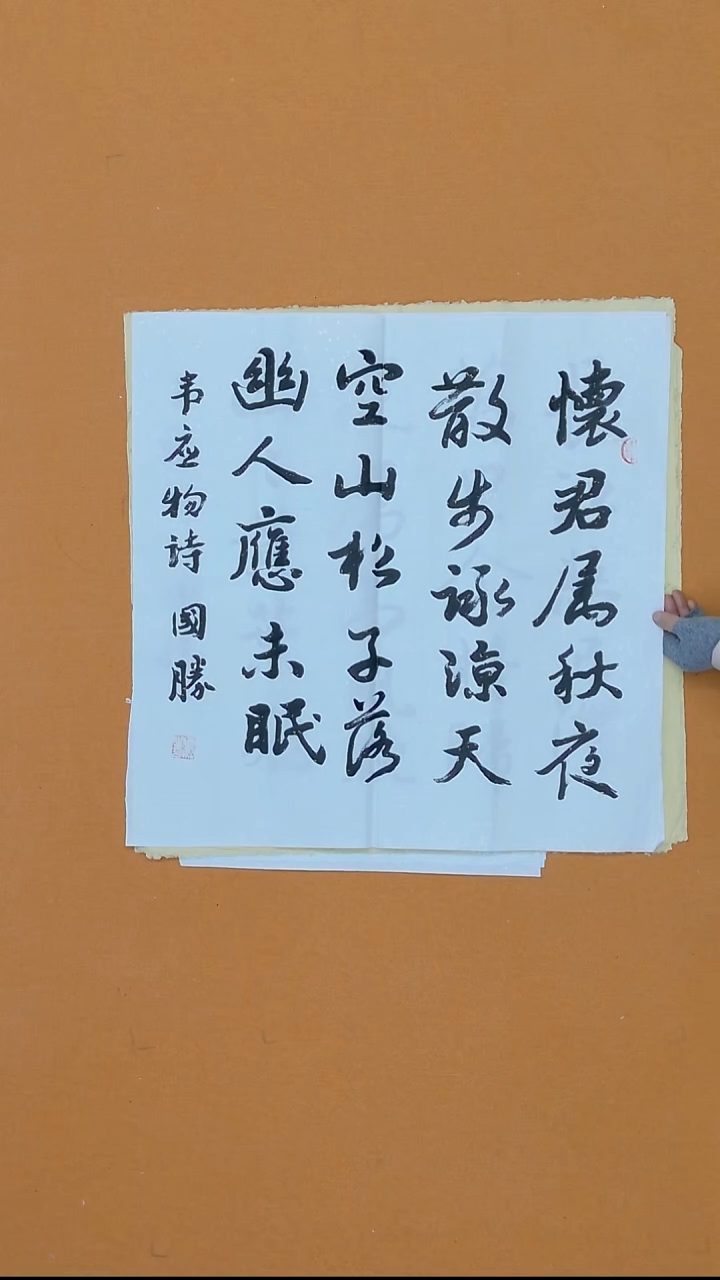 懷君属秋夜
散步詠涼天
空山松子落
幽人應未眠
韦应物詩 國勝